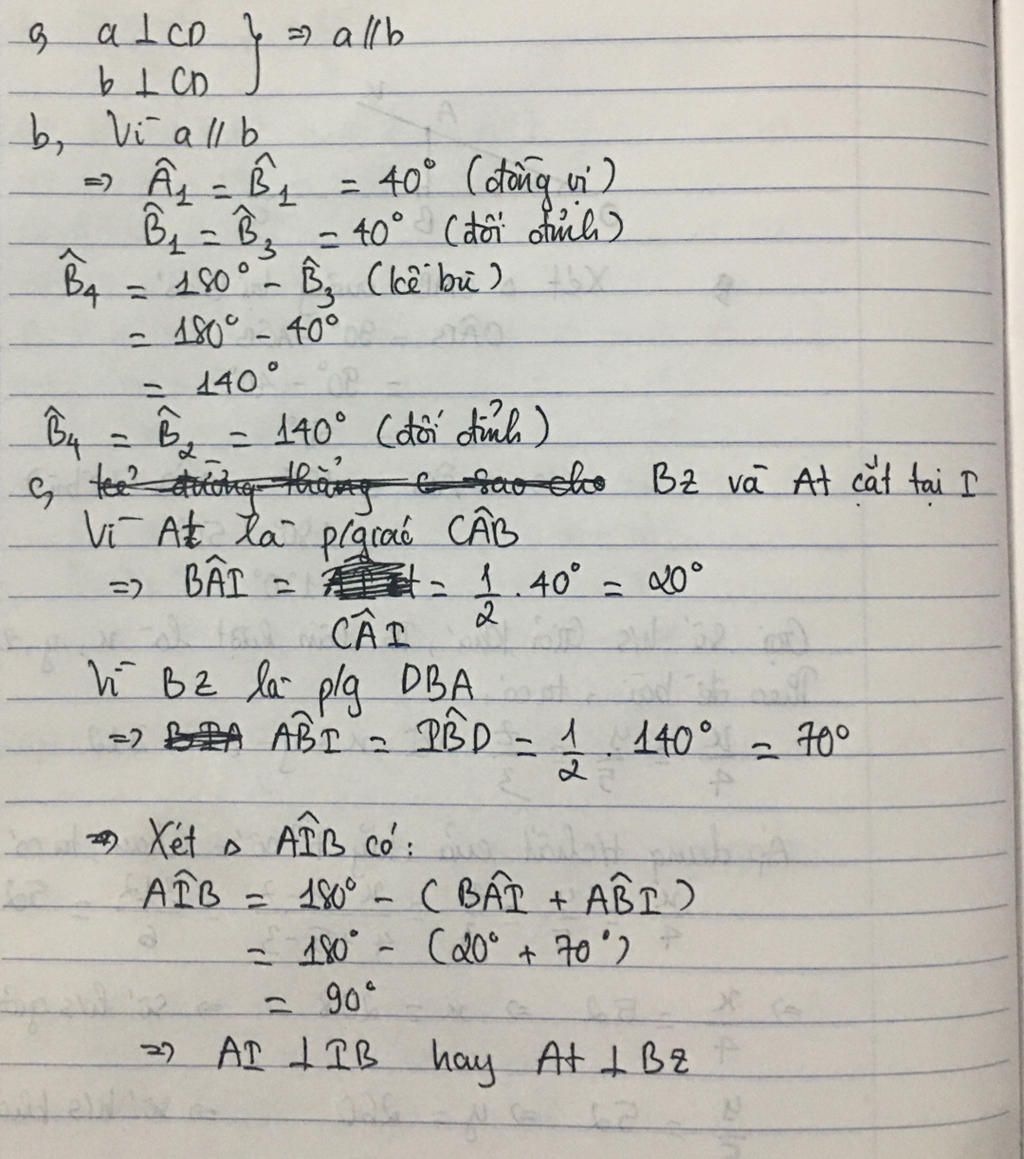 a, a ⊥ CD } ⇒ a // b
b ⊥ CD
b, Vì a // b
⇒ Â₁ = B̂₁ = 40° (đồng vị)
B̂₁ = B̂₃ = 40° (đối đỉnh)
B̂₄ = 180° - B̂₃ (kề bù)
= 180° - 40°
= 140°
B̂₄ = B̂₂ = 140° (đối đỉnh)
c, kẻ đường thẳng c sao cho Bz và At cắt tại I
Vì At là p/giác CÂB
⇒ BÂI = = 1/2 . 40° = 20°
CÂI
Vì Bz là p/g DBA
⇒ BIA AB̂I = IB̂D = 1/2 . 140° = 70°
⇒ Xét △ AÎB có:
AÎB = 180° - (BÂI + AB̂I)
= 180° - (20° + 70°)
= 90°
⇒ AI ⊥ IB hay At ⊥ Bz